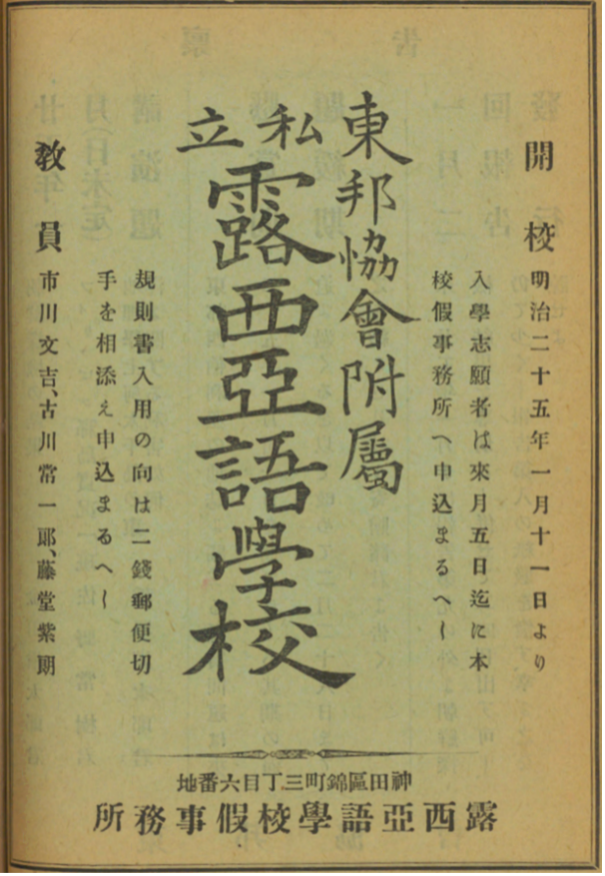 開校明治二十五年一月十一日より
入學志願者は來月五日迄に本
校假事務所へ申込まるへし
東邦協會附屬
私立
露西亞語學校
規則書入用の向は二錢郵便切
手を相添え申込まるへし
教員市川文吉、古川常一郞、藤堂紫朗
神田區錦町三丁目六番地
露西亞語學校假事務所